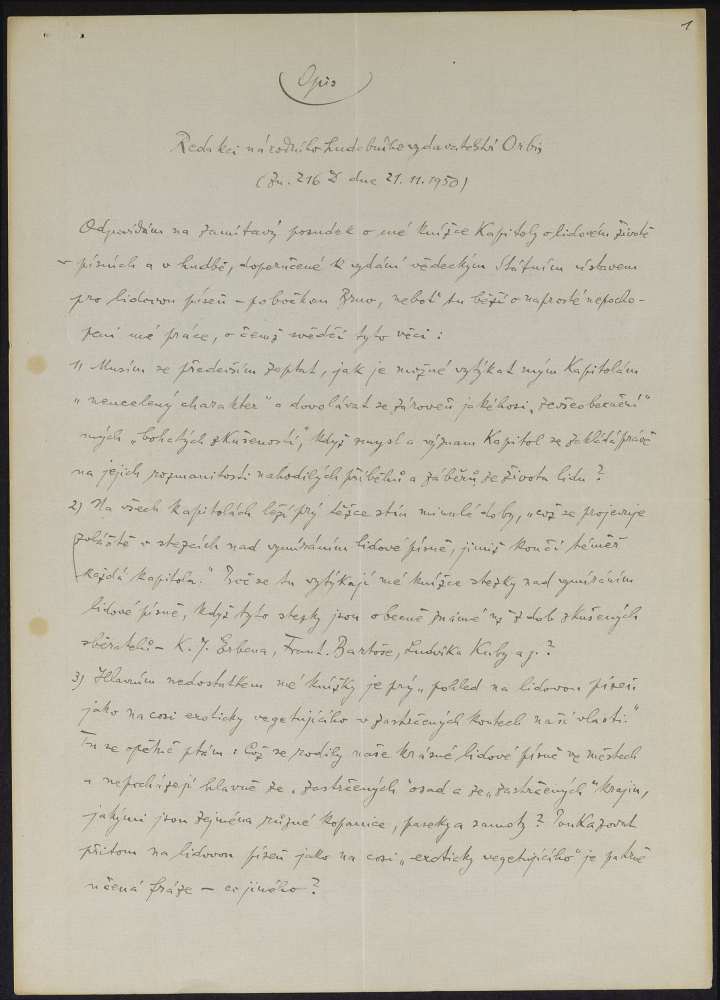 1
Opis
Redakci národního hudebního vydavatelství Orbis
(Zn. 216 D dne 21.11.1950)
Odpovídám na zamítavý posudek o mé knížce Kapitoly o lidovém životě
v písních a v hudbě, doporučené k vydání vědeckým Státním ústavem
pro lidovou píseň – pobočkou Brno, neboť tu běží o naprosté nepocho-
pení mé práce, o čemž svědčí tyto věci:
1) Musím se především zeptat, jak je možné vytýkat mým Kapitolám
"neucelený charakter" a dovolávat se zároveň jakéhosi "zevšeobecnění"
mých "bohatých zkušeností", když smysl a význam Kapitol se zakládá právě
na jejich rozmanitosti nahodilých příběhů a záběrů ze života lidu?
2) Na všech kapitolách leží prý těžce stín minulé doby, "což se projevuje
zvláště v stezcích nad vymíráním lidové písně, jimiž končí téměř
každá kapitola." Proč se tu vytýkají mé knížce stezky nad vymíráním
lidové písně, když tyto stezky jsou obecně známé už z dob zkušených
sběratelů – K. J. Erbena, Frant. Bartoše, Ludvíka Kuby aj.?
3) Hlavním nedostatkem mé knížky je prý "pohled na lidovou píseň
jako na cosi exoticky vegetujícího v zastrčených koutech naší vlasti."
Tu se opětně ptám: Což se rodily naše krásné lidové písně ve městech
a nepocházejí hlavně ze "zastrčených" osad a ze "zastrčených" krajin,
jakými jsou zejména různé kopanice, paseky a samoty? Poukazovat
přitom na lidovou píseň jako na cosi "exoticky vegetujícího" je patrně
učená fráze – co jiného?